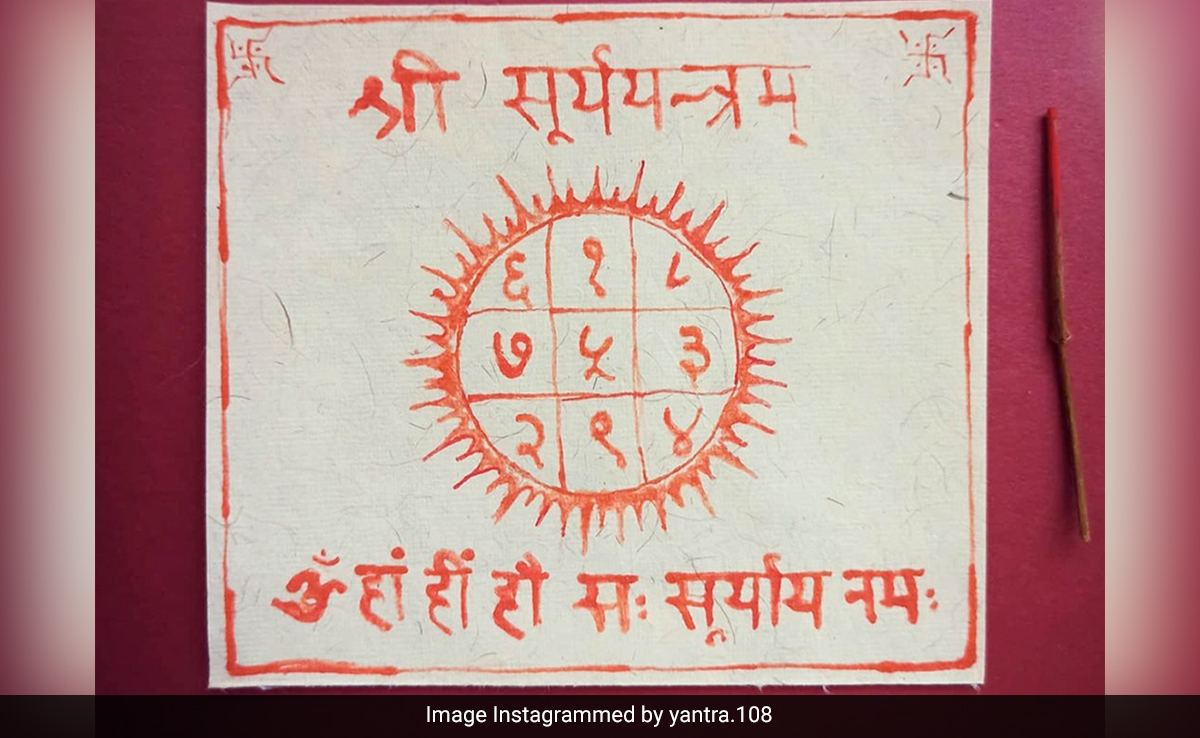 श्री सूर्ययन्त्रम्
६ १ ८
७ ५ ३
२ ९ ४
ॐ ह्रां ह्रीं ह्रौ सः सूर्याय नमः
Image Instagrammed by yantra.108